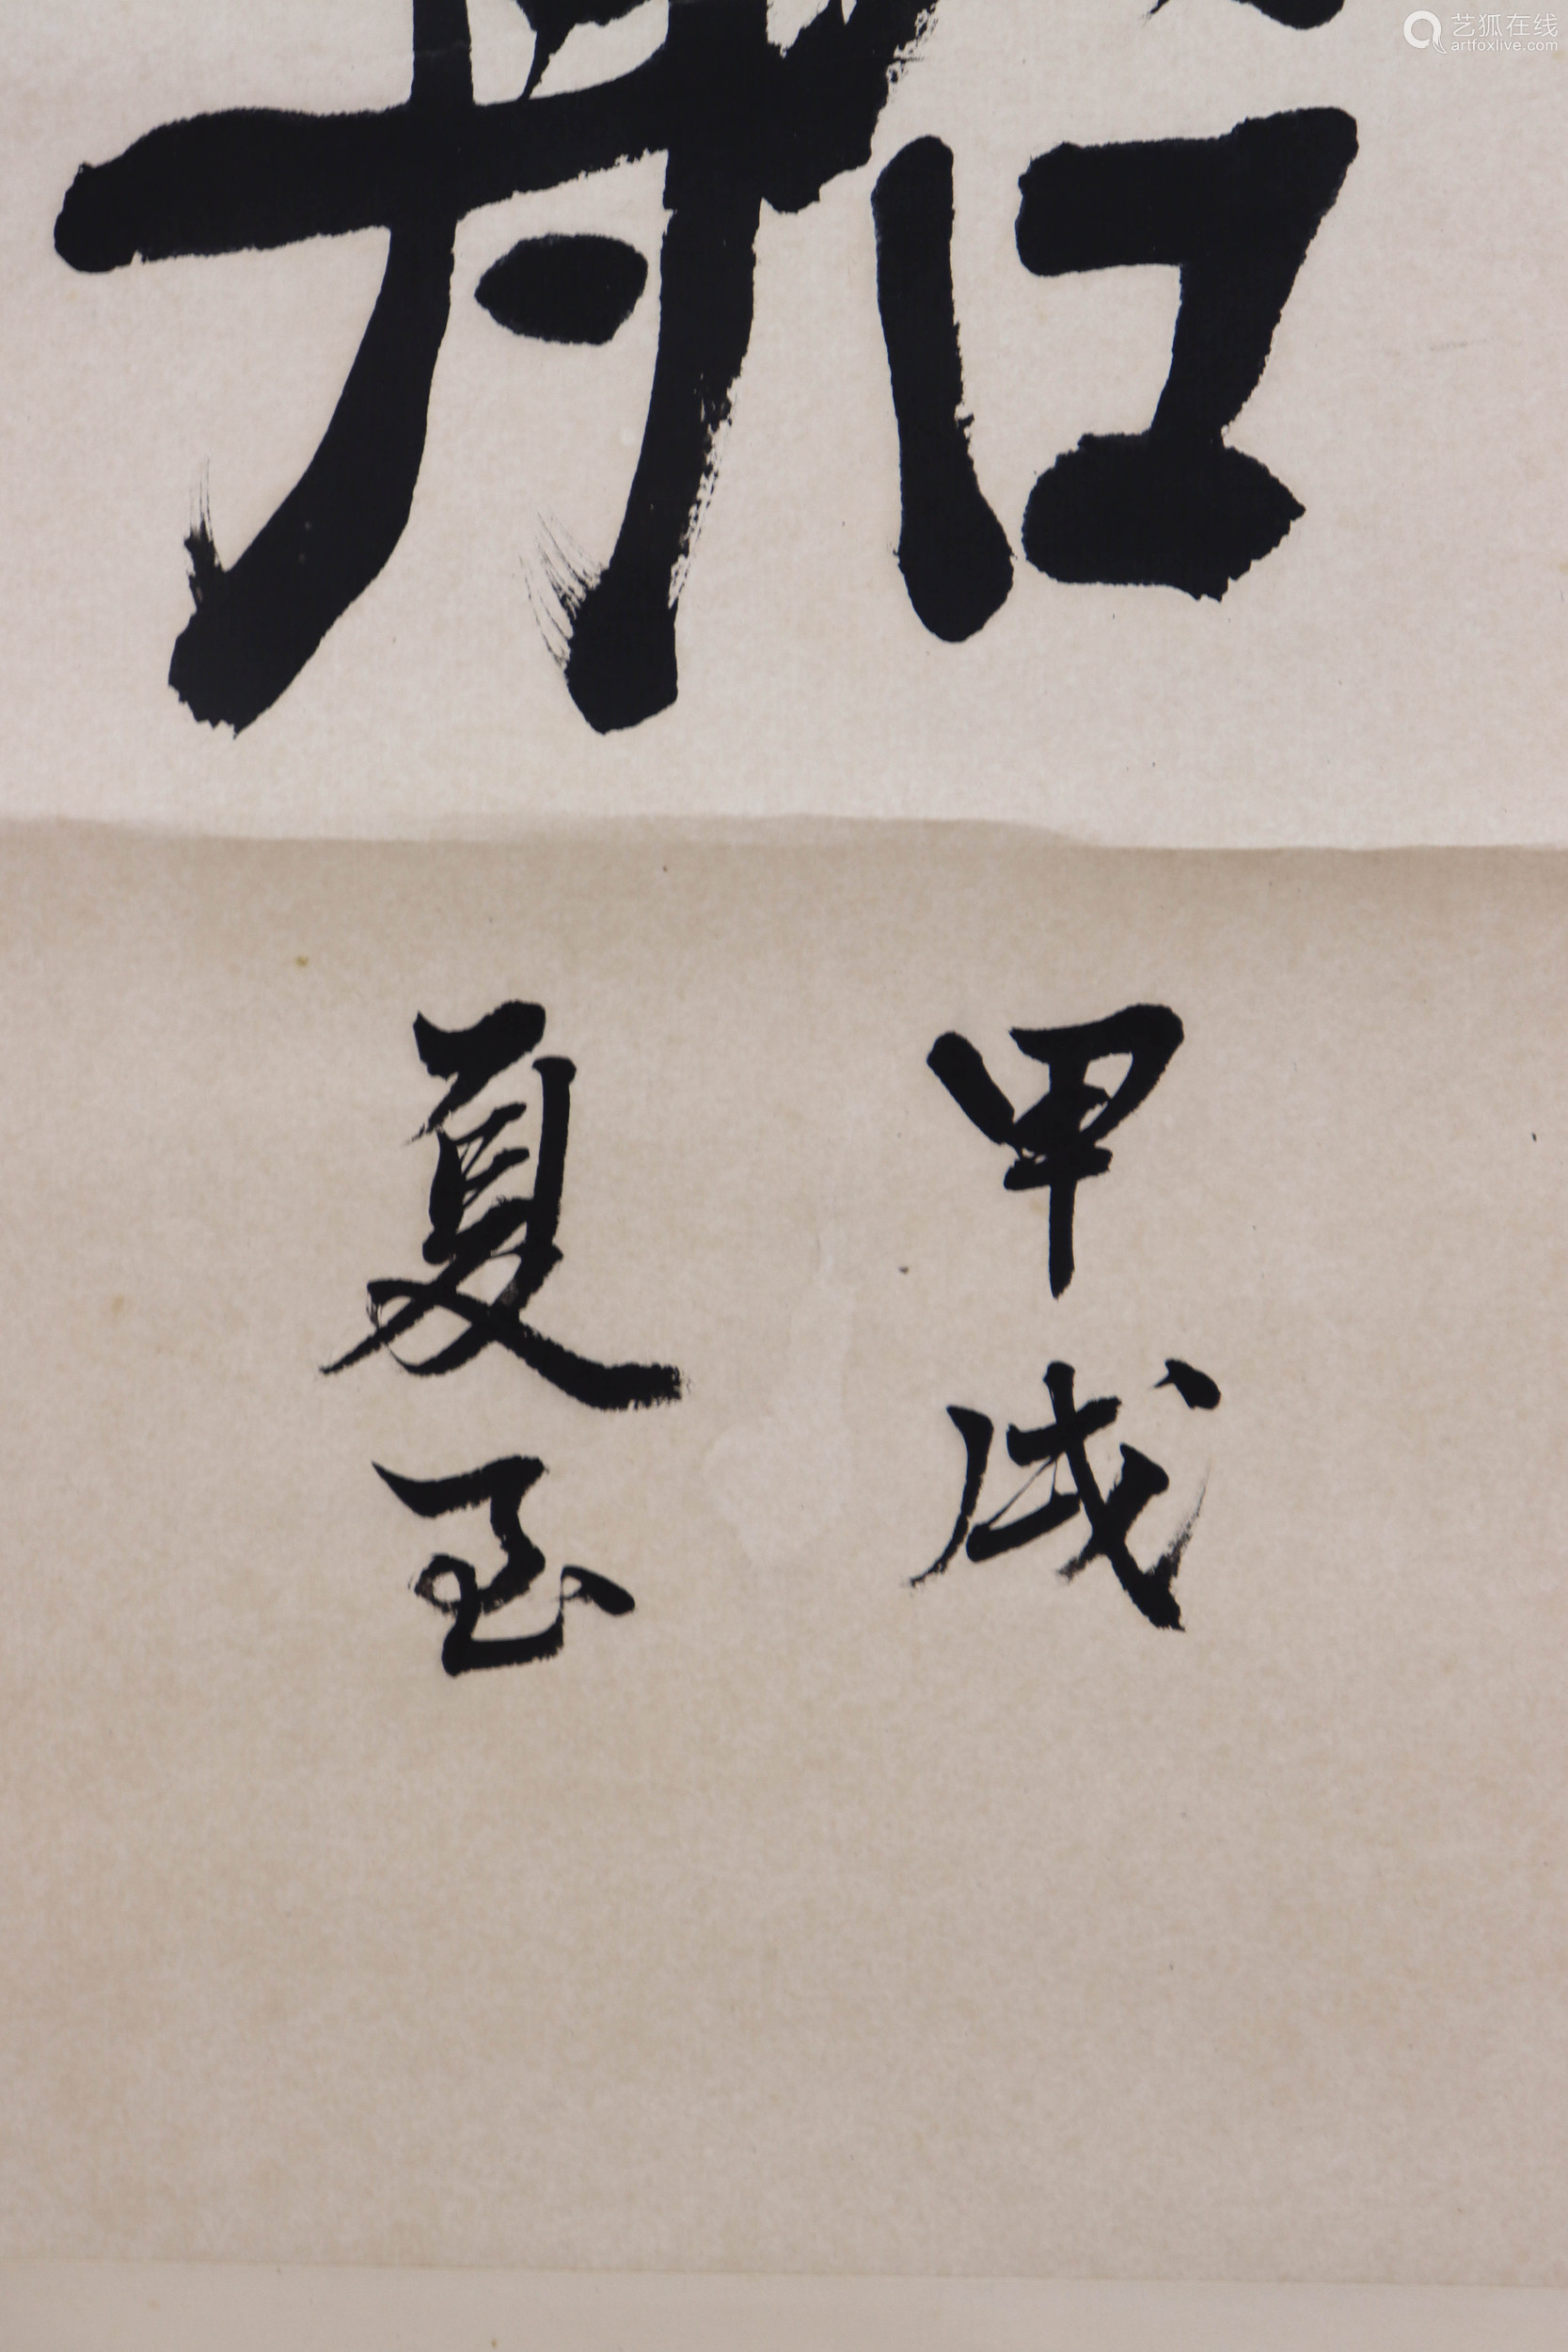 艺狐在线
artfoxlive.com
船
甲戌
夏至